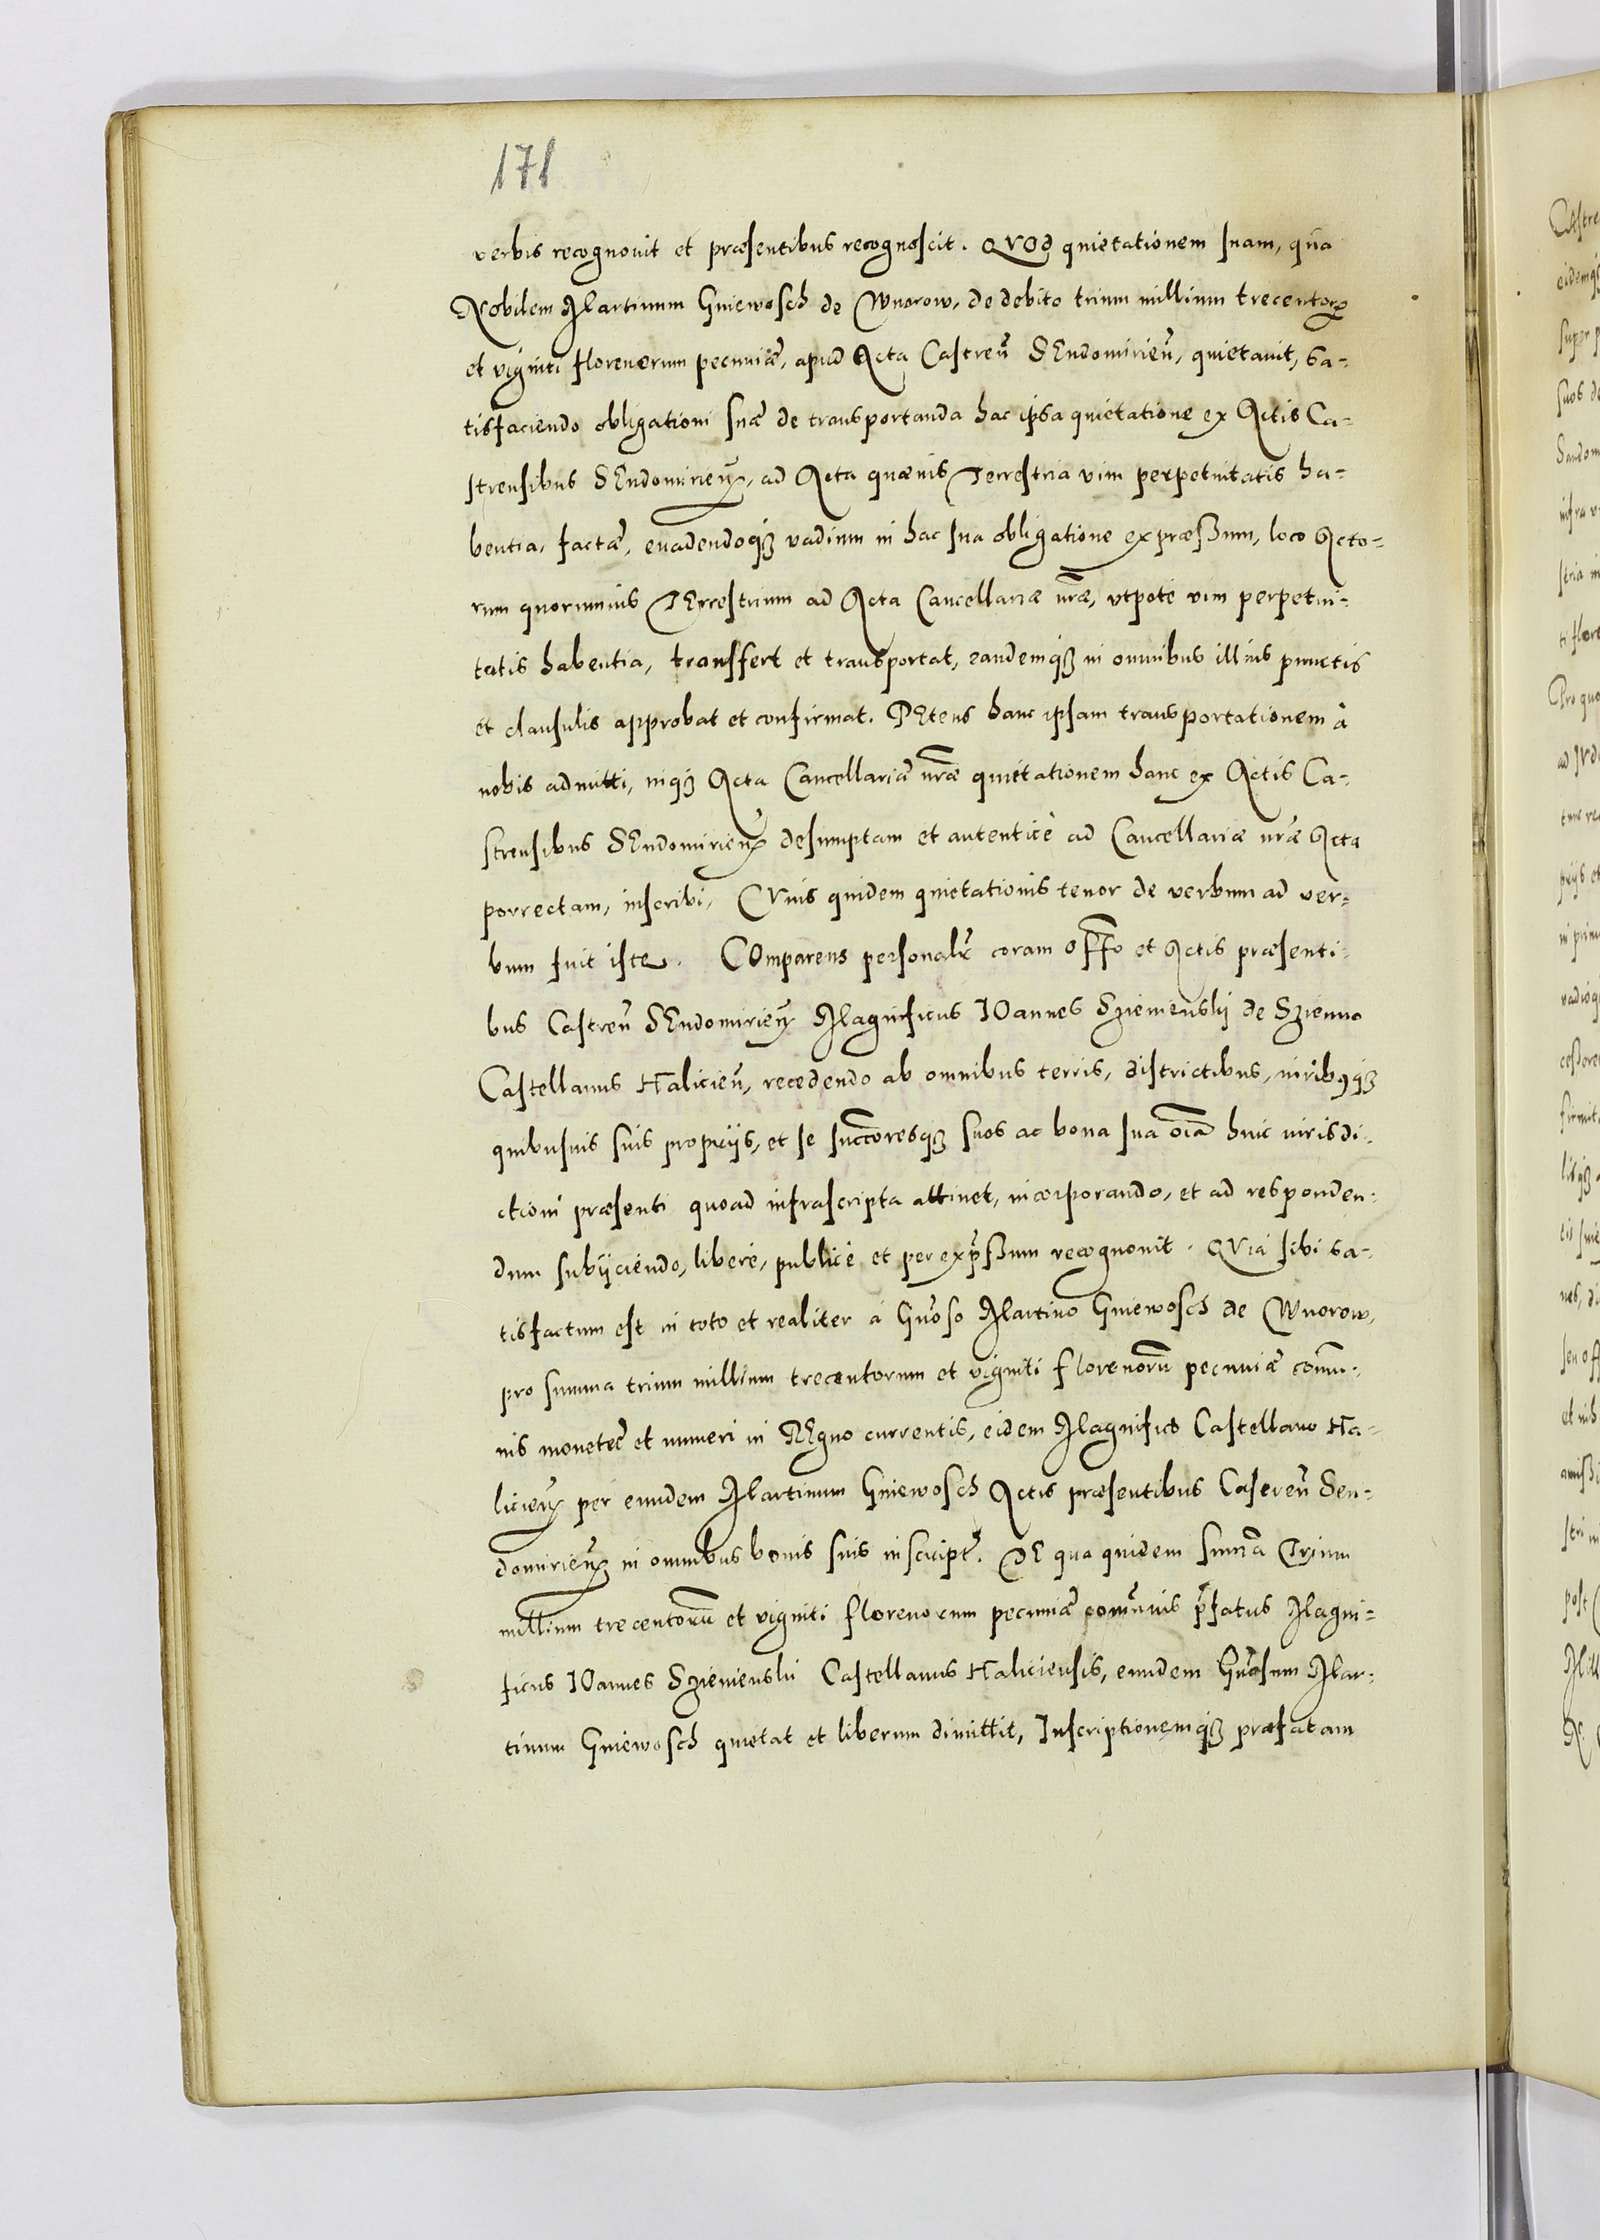 171
verbis recognouit et præsentibus recognoscit. QVOd quietationem suam, qua
Nobilem Martinum Gniewosch de Wnorow, de debito trium millium trecentorꝝ
et viginti florenorum pecuniæ, apud Acta Castreñ SEndomirieñ, quietauit, sa-
tisfaciendo obligationi suæ de transportanda hac ipsa quietatione ex Actis Ca-
strensibus SEndomirieñ, ad Acta quæuis Terrestria vim perpetuitatis ha-
bentia, factæ, euadendoqꝫ vadium in hac sua obligatione expræßum, loco Acto-
rum quorumuis TErrestrium ad Acta Cancellariæ nr̃æ, vtpote vim perpetui-
tatis habentia, transfert et transportat, eandemqꝫ in omnibus illius punctis
et clausulis approbat et confirmat. PEtens hanc ipsam transportationem â
nobis admitti, inqꝫ Acta Cancellariæ nr̃æ quietationem hanc ex Actis Ca-
strensibus SEndomirieñ desumptam et autenticè ad Cancellariæ nr̃æ Acta
porrectam, inscribi, CVius quidem quietationis tenor de verbum ad ver-
bum fuit iste. COmparens personalr̃ coram offo et Actis præsenti-
bus Castreñ SEndomirieñ Magnificus IOannes Sziemenskij de Szienno
Castellanus Halicieñ, recedendo ab omnibus terris, districtibus, iuribꝰqꝫ
quibusuis suis proprijs, et se succoresqꝫ suos ac bona sua oīa huic iurisdi-
ctioni præsenti quoad infrascripta attinet, incorporando, et ad responden-
dum subijciendo, liberè, publicè et per exp̃ßum recognouit. QVia sibi sa-
tisfactum est in toto et realiter à Gñoso Martino Gniewosch de Wnorow,
pro summa trium millium trecentorum et viginti florenorũ pecuniæ com̃u-
nis monetæ et numeri in REgno currentis, eidem Magnifico Castellano Ha-
licieñ per eundem Martinum Gniewosch Actis præsentibus Castreñ Sen-
domirieñ in omnibus bonis suis inscript̃. DE qua quidem sum̃a Trium
millium trecentorũ et viginti florenorum pecuniæ com̃unis p̃fatus Magni-
ficus IOannes Sziemenskii Castellanus Haliciensis, eundem Gñosum Mar-
tinum Gniewosch quietat et liberum dimittit, Inscriptionemqꝫ præfatam